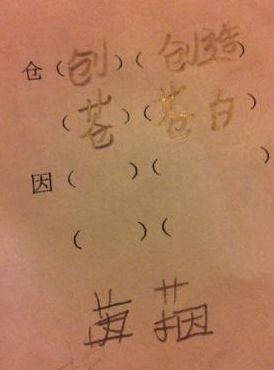 仓（创）（创造）
（苍）（苍白）
因（　）（　）
（　）（　）
茵